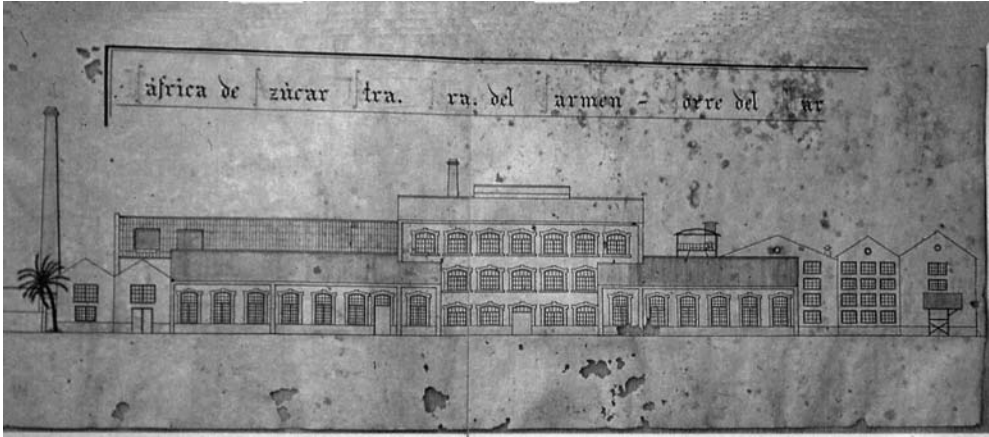 Fáfrica de Azúcar Ntra. Sra. del Carmen - Torre del Mar